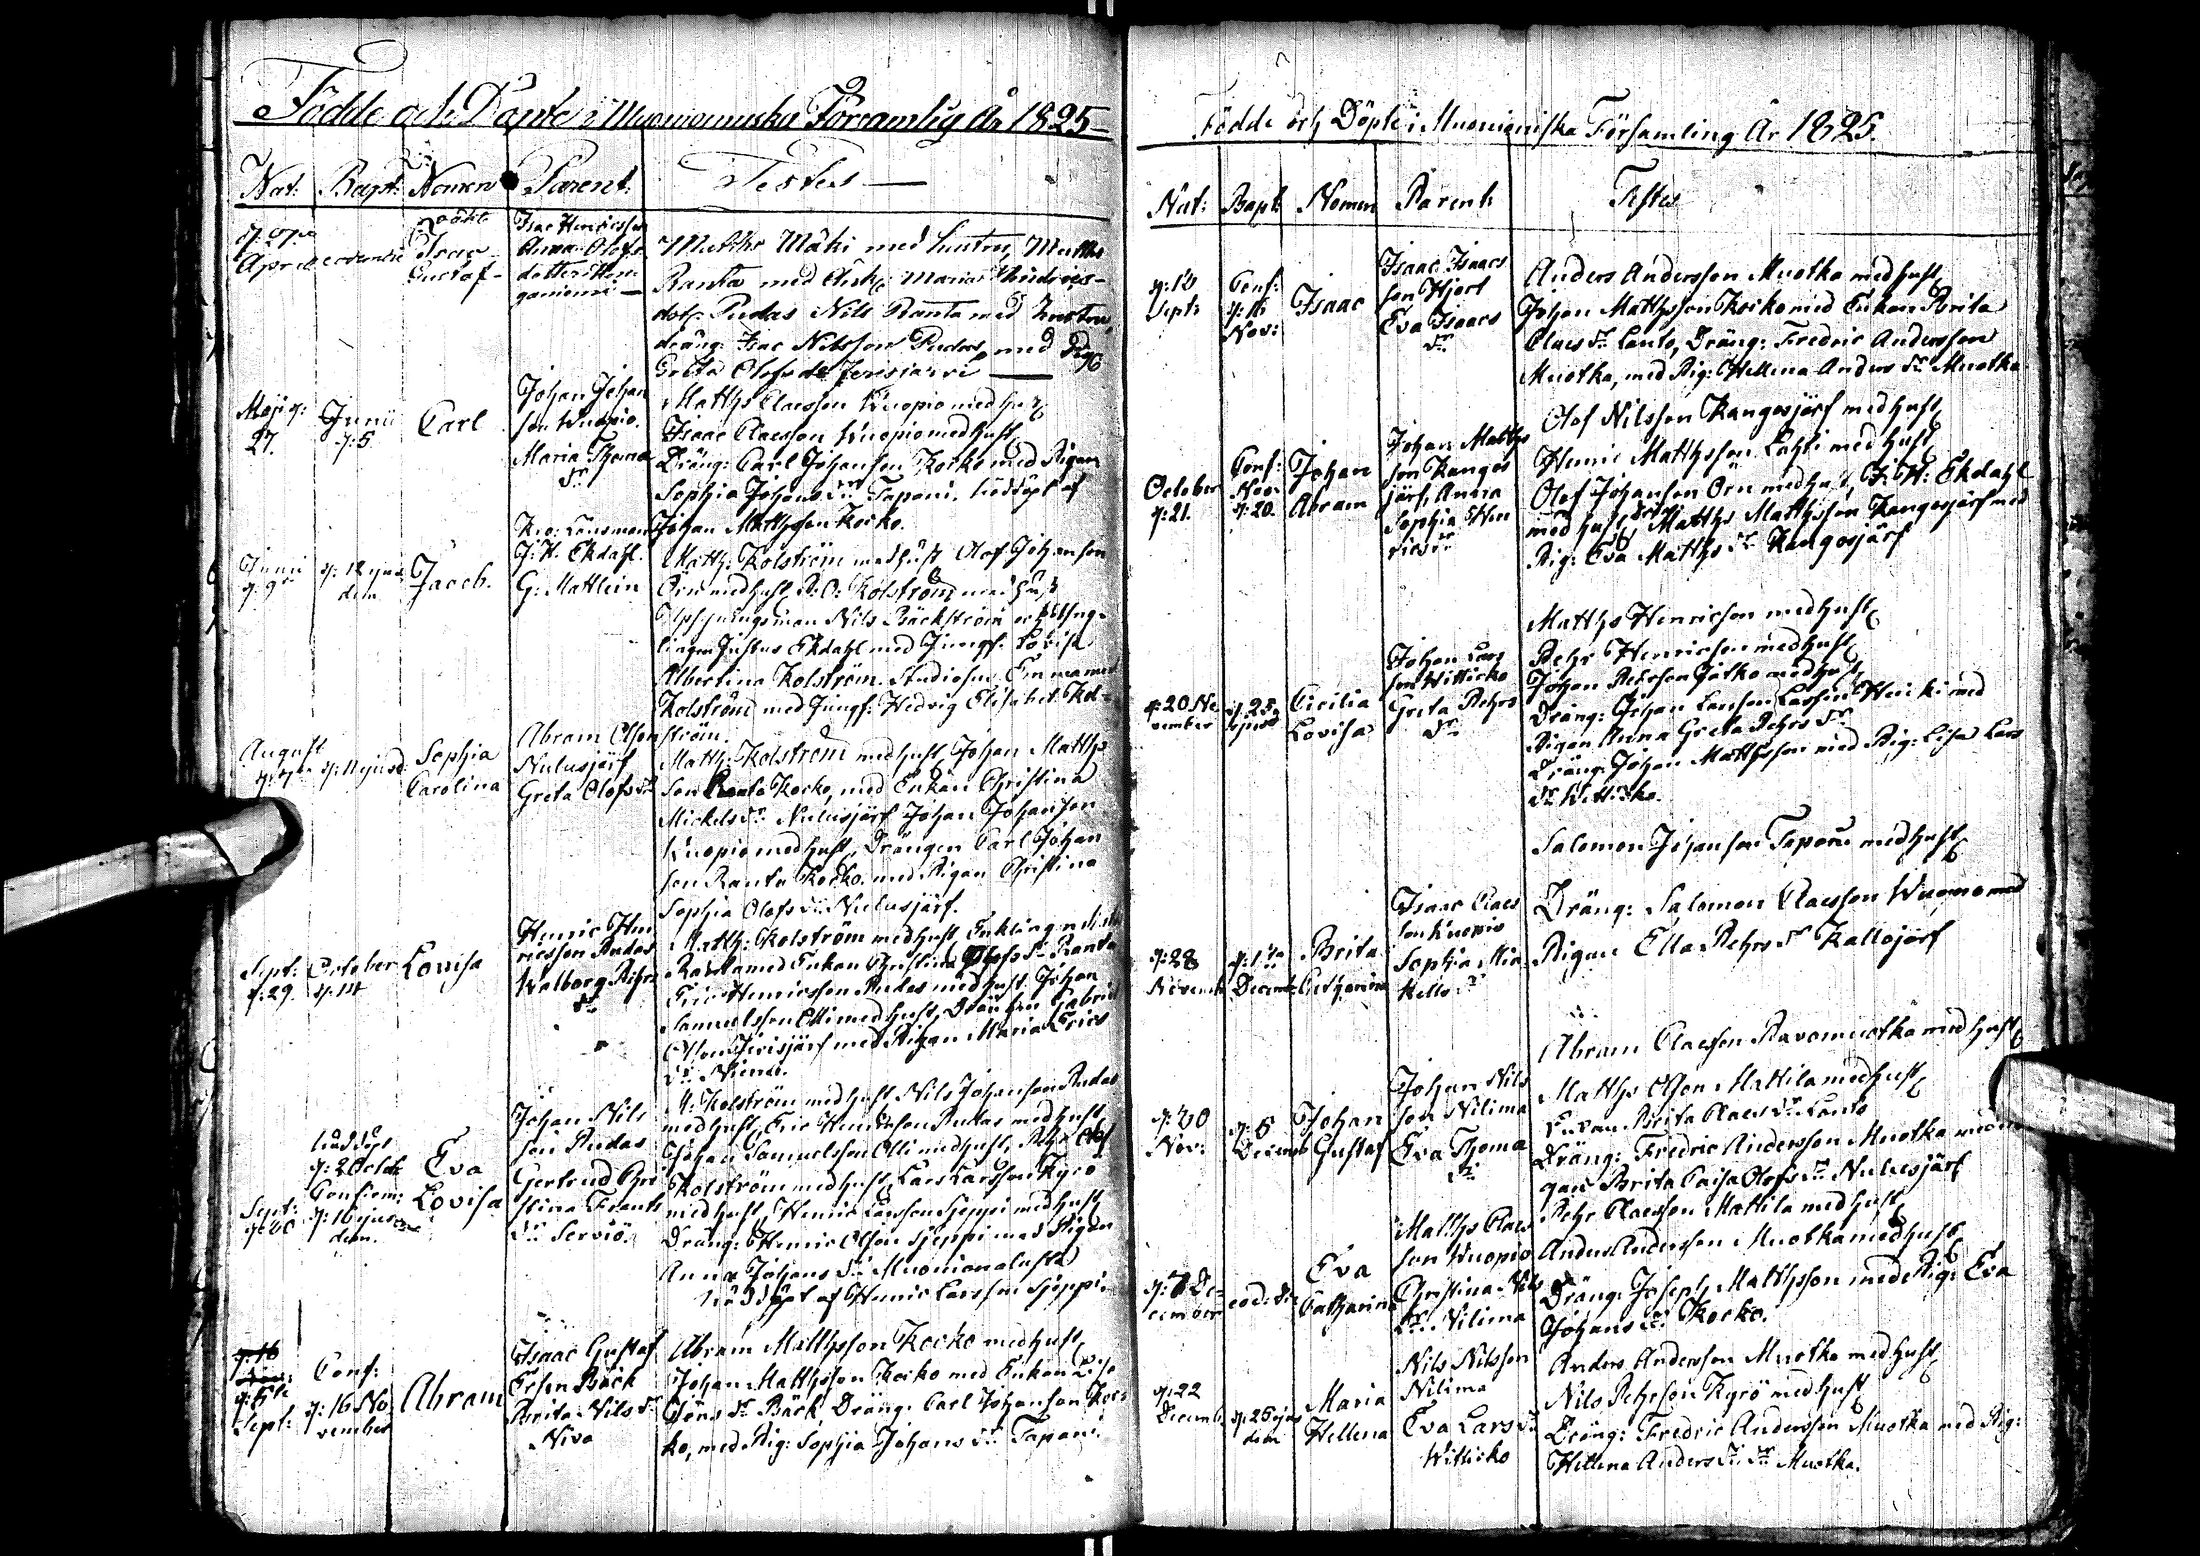 Födde och Döpte i Muonioniska Församlig År 1825
Nat: Bapt: Nomen Parent: Testes
April eodem die Isac Gustaf
Isac Henricsson
Anna Olofs
dotter
Matths Mäki med hustru, Matths
Ranta med Maria Andreæ
Pudas Nils Ranta med hustru,
dräng: Isac Nilsson Pudas, med Pig
Greta Olofs dr Jerisjärvi
Maji d: 27. Junii d: 5. Carl
Johan Johan
son Kuopio.
Maria Thomæ
dr
Matths Claesson Kuopio med hust
Isaac Claesson Kuopio med hust
Dräng: Carl Johansson Kocko med Pigan
Sophia Johans dr Tapani. Nöddöpt af
Johan Matthsson Kocko.
Junii d: 9 d: 12 ejus dem Jacob.
Kro: Länsman
J. H. Ekdahl.
G: Matlein
Matth: Kolström med hust Olof Johansson
Örn med hust, P: O: Kolström med hust
Nils Bäckström och
Justus Ekdahl med Jungf: Lovisa
Albertina Kolström. Studiosus
Kolström med Jungf: Hedvig Elisabet Kol-
ström.
August d: 7 d: 11 ejusd Sophia Carolina
Abram Olson
Nulusjärf
Greta Olofs dr
Matth: Kolström med hust, Johan Matths
son Ranta Kocko, med Enkan Christina
Mickels dr Nulusjärf Johan Johansson
Kuopio med hust, Drängen Carl Johan
son Ranta Kocko. med Pigan Christina
Sophia Olofs dr Nulusjärf.
Sept: d: 29. October d: 14 Lovisa
Henric Hen
ricsson Pudas
Walborg Pehrs
dr
Matth: Kolström med hust, Enklingen
Ranta med Enkan Christina Olofs dr Ranta
Eric Henricsson Pudas med hust Johan
Samuelsson Olli med hust, Drängen Gabriel
Olson Jerisjärf med Pigan Maria Erics
dr Niemi.
Sept: d: 30 nöddöpt d: 2 Octob Confirm: d: 16 ejus dem. Eva Lovisa
Johan Nils
son Pudas
Gertrud Chri
stina Frants
dr Serviö.
M: Kolström med hust, Nils Johansson Pudas
med hust, Eric Henricsson Pudas med hust,
Johan Samuelsson Olli med hust, Pehr Olof
Kolström med hust, Lars Larsson Kyrö
med hust, Henric Larsson Sieppi med hust,
Dräng: Henric Olson Sieppi med Pigan
Anna Johans dr Muonionalusta
Nöddöpt af Henric Larsson Sieppi
d: 16 Nov: Sept: Conf: d: 16 November Abram
Isaac Gustaf
Erson Bäck
Brita Nils dr
Niva
Abram Matthsson Kocko med hust
Johan Matthsson Kocko med Enkan Lisa
Jöns dr Bäck, Dräng: Carl Johansson Koc-
ko, med Pig: Sophia Johans dr Tapani
Födde och Döpte i Muonioniska Församling År 1825.
Nat: Bapt: Nomen Parent: Testes
d: 12 Sept: Conf: d: 16 Nov: Isaac
Isaac Isaacs
son Hjort
Eva Isaacs
dr
Anders Andersson Muotka med hust,
Johan Matthsson Kocko med Enkan Brita
Claes dr Lanto, Dräng: Fredric Andersson
Muotka, med Pig: Hellena Anders dr Muotka
October d: 21. Conf: Nov: d: 20. Johan Abram
Johan Matths
son Kangos
järf, Anna
Sophia Hen
rics dr
Olof Nilsson Kangosjärf med hust,
Henric Matthsson Lahti med hust,
Olof Johansson Örn med hust, J: H: Ekdahl
med hust, Matths Matthsson Kangosjärf med
Pig: Eva Matths dr Kangosjärf
d: 20 November d: 25 ejusd Cicilia Lovisa
Johan Lars
son Witticko
Greta Pehrs
dr
Matths Henricson med hust,
Pehr Henricson med hust,
Johan Pehrson Jatko med hust,
Dräng: Johan Larsson Henriki med
Pigan Anna Greta Pehrs dr
Dräng: Johan Matthsson med Pig: Lisa Lars
dr Witticko.
d: 28 November d: 1 December Brita Catharina
Isaac Claes
son Kuopio
Sophia Mic
kells dr
Salomon Johansson Tapani med hust,
Dräng: Salomon Claesson Wuomo med
Pigan Ella Pehrs dr Kallojärf
d: 30 Nov: d: 6 Decemb Johan Gustaf
Johan Nils
son Nilima
Eva Thomæ
dr
Abram Claesson Ravamuotka med hust,
Matths Olson Mattila med hust,
Enkan Brita Claes dr Lanto
Dräng: Fredric Andersson Muotka med Pi
gan Brita Caisa Olofs dr Nulusjärf
d: 7 December eod: die Eva Catharina
Matths Claes
son Kuopio
Christina Nils
dr Nilima
Pehr Claesson Mattila med hust,
Anders Andersson Muotka med hust,
Dräng: Joseph Matthsson med Pig: Eva
Johans dr Kocko.
d: 22 Decemb d: 26 ejus dem Maria Hellena
Nils Nilsson
Nilima
Eva Lars dr
Witticko
Anders Andersson Muotka med hust,
Nils Pehrson Kyrö med hust,
Dräng: Fredric Andersson Muotka med Pig:
Hellena Anders dr Muotka.